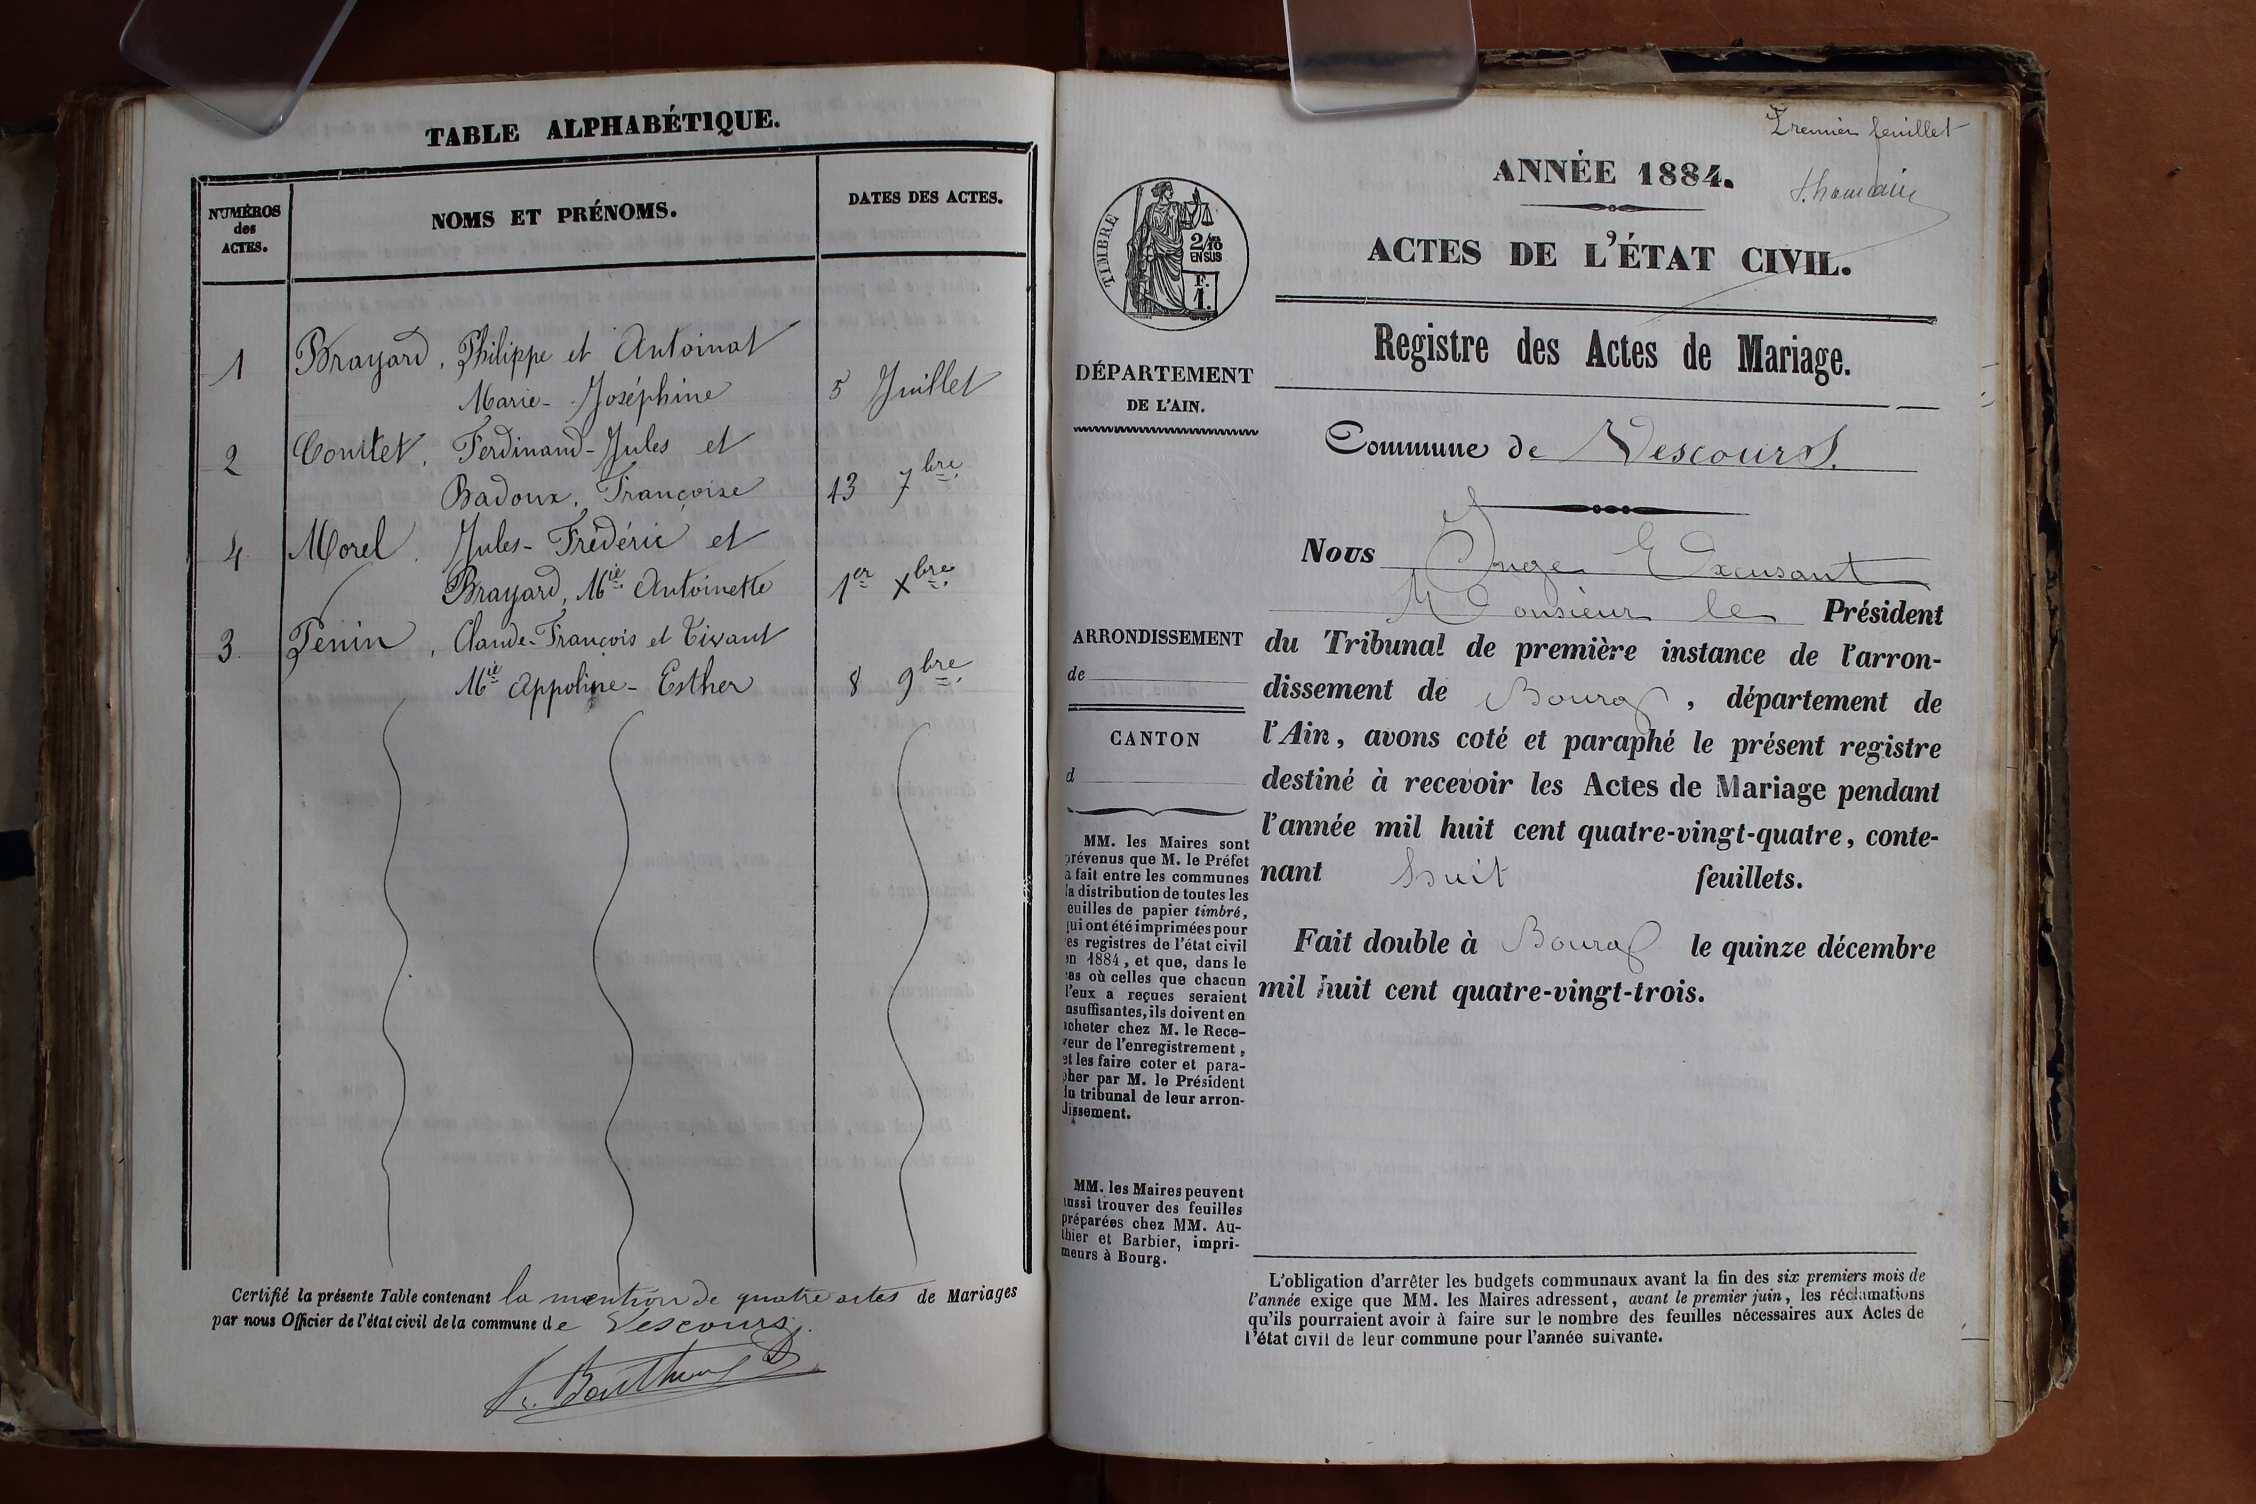 TABLE ALPHABÉTIQUE.
NUMÉROS
des
ACTES.
NOMS ET PRÉNOMS.
DATES DES ACTES.
1 Brayard, Philippe et Antoinat
Marie-Joséphine 5 Juillet
2 Conttet, Ferdinand-Jules et
Badoux, Françoise 13 7bre.
4 Morel, Jules-Frédéric et
Brayard, Mie Antoinette 1er Xbre.
3 Penin, Claude-François et Tivant
Mie Appoline-Esther 8 9bre.
Certifié la présente Table contenant la mention de quatre actes de Mariages
par nous Officier de l'état civil de la commune de Vescours.
Premier feuillet
ANNÉE 1884.
ACTES DE L'ÉTAT CIVIL.
TIMBRE
2/10
EN SUS
F.
1.
Registre des Actes de Mariage.
DÉPARTEMENT
DE L'AIN.
Commune de Vescours.
Nous Juge Excusant
Monsieur le Président
du Tribunal de première instance de l'arron-
dissement de Bourg, département de
l'Ain, avons coté et paraphé le présent registre
destiné à recevoir les Actes de Mariage pendant
l'année mil huit cent quatre-vingt-quatre, conte-
nant huit feuillets.
Fait double à Bourg le quinze décembre
mil huit cent quatre-vingt-trois.
ARRONDISSEMENT
de
CANTON
d
MM. les Maires sont
prévenus que M. le Préfet
a fait entre les communes
la distribution de toutes les
euilles de papier timbré,
qui ont été imprimées pour
es registres de l'état civil
en 1884, et que, dans le
cas où celles que chacun
l'eux a reçues seraient
nsuffisantes, ils doivent en
acheter chez M. le Rece-
veur de l'enregistrement,
et les faire coter et para-
pher par M. le Président
du tribunal de leur arron-
dissement.
MM. les Maires peuvent
aussi trouver des feuilles
préparées chez MM. Au-
thier et Barbier, impri-
meurs à Bourg.
L'obligation d'arrêter les budgets communaux avant la fin des six premiers mois de
l'année exige que MM. les Maires adressent, avant le premier juin, les réclamations
qu'ils pourraient avoir à faire sur le nombre des feuilles nécessaires aux Actes de
l'état civil de leur commune pour l'année suivante.